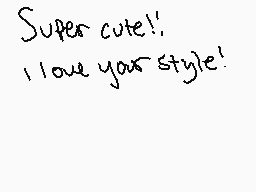 Super cute!!
I love your style!